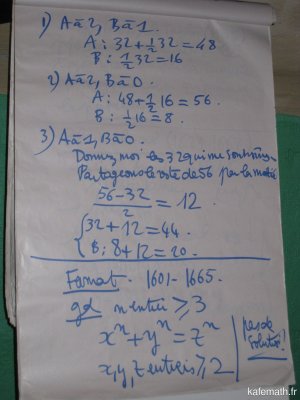 1) A à 2, B à 1.
A : 32 + 1/2 32 = 48
B : 1/2 32 = 16
2) A à 2, B à 0.
A : 48 + 1/2 16 = 56.
B : 1/2 16 = 8.
3) A à 1, B à 0.
Donnez moi les 32 qui me sont
Partageons le reste de 56 par la moitié
56-32/2 = 12
{ 32 + 12 = 44.
B : 8 + 12 = 20.
Fermat - 1601 - 1665.
gd n entier ≥ 3
x^n + y^n = z^n
x, y, z entiers ≥ 2
pas de
solution!
kafemath.fr